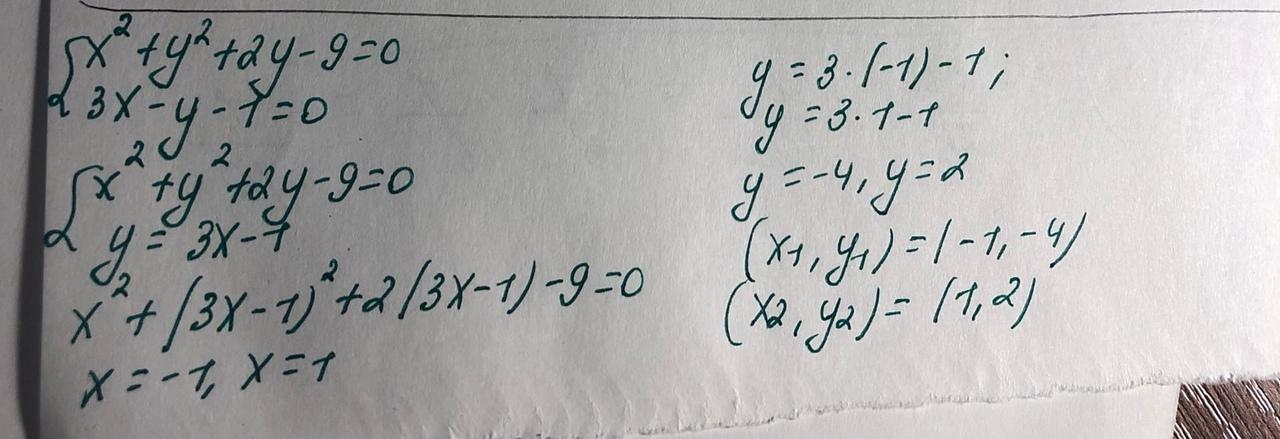 {x²+y²+2y-9=0
3x-y-1=0
{x²+y²+2y-9=0
y=3x-1
x²+(3x-1)²+2(3x-1)-9=0
x=-1, x=1
y=3·(-1)-1;
y=3·1-1
y=-4, y=2
(x1, y1)=(-1,-4)
(x2, y2)=(1,2)